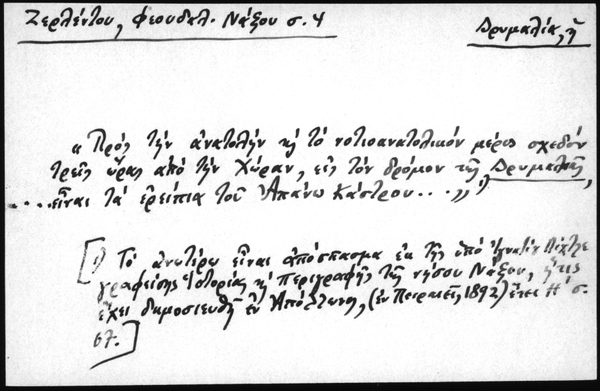 Ζερλέντου, Φεουδαλ. Νάξου σ. 4
Δρυμαλία, ἡ
« Πρὸς τὴν ἀνατολὴν κὴ τὸ νοτιοανατολικὸν μέρος σχεδὸν
τρεῖς ὥρας ἀπὸ τὴν Χώραν, εἰς τὸν δρόμον τῆς Δρυμαλίας,
....εἶναι τὰ ἐρείπια τοῦ Ἀπάνω Κάστρου...»
[1) Τὸ ἀνωτέρω εἶναι ἀπόσπασμα ἐκ τῆς ὑπὸ Ἰγνατίου
γραφείσης Ἱστορίας κὴ περιγραφῆς τῆς νήσου Νάξου, ἥτις
ἔχει δημοσιευθῆ ἐν Ἀπόλλωνι, (ἐν Πειραιεῖ, 1892) ἔτει Η' σ.
67.]